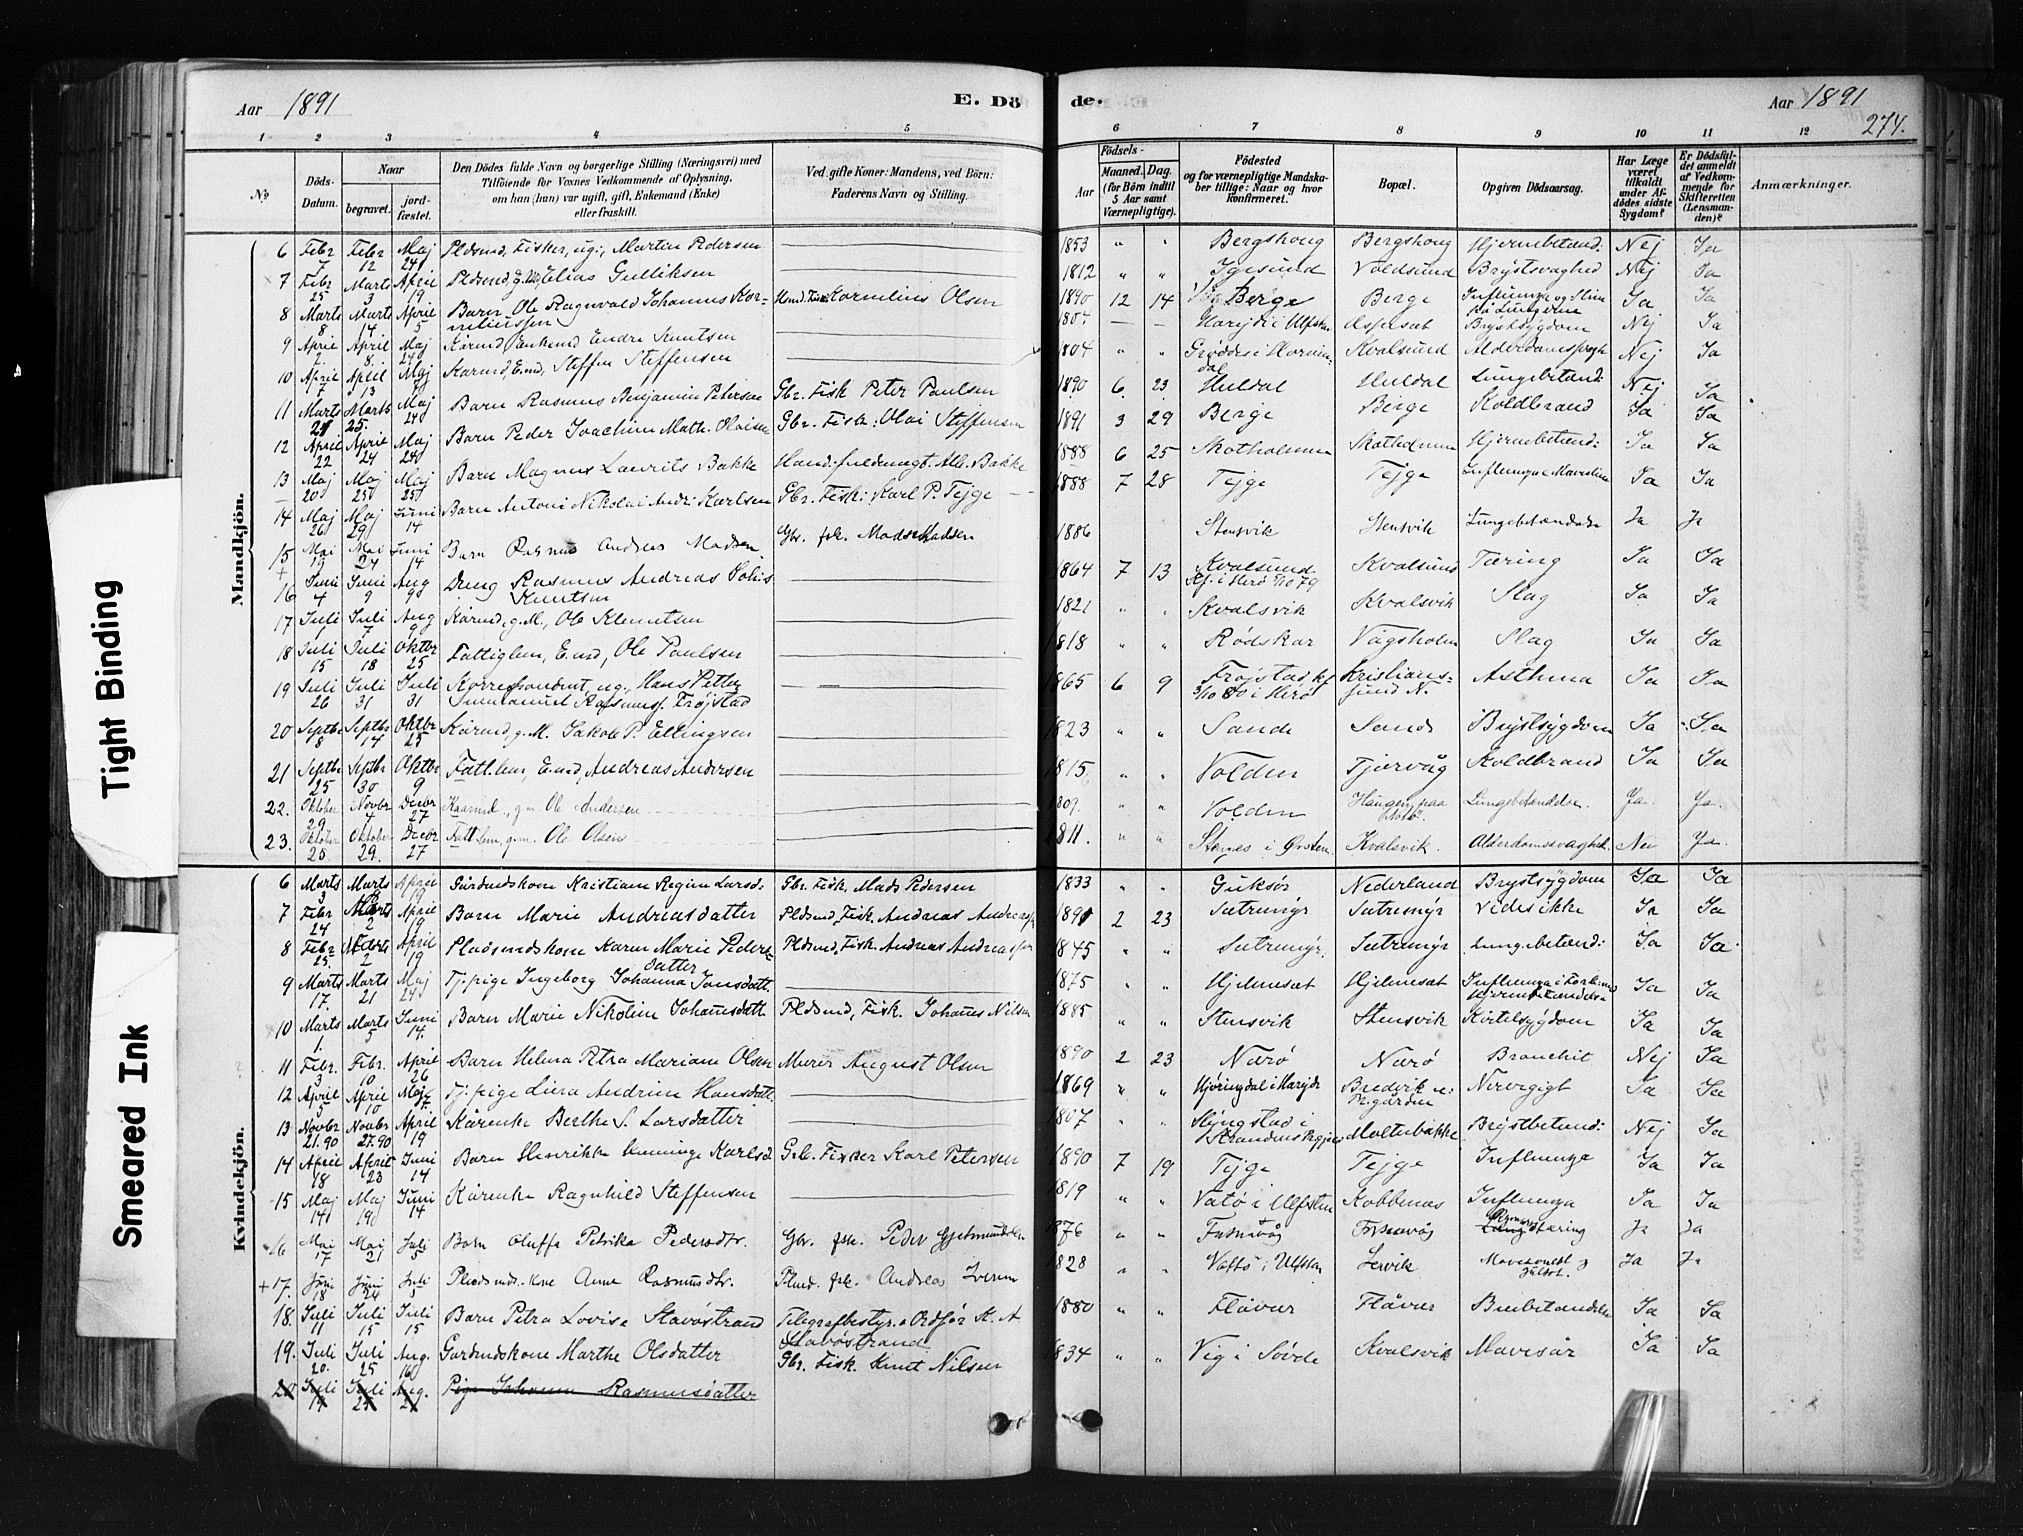 Aar 1891
E. Dö
de.
Aar 1891
274.
1 2 3 4 5 6 7 8 9 10 11 12
No
Döds-Datum.
Naar
begravet.
jord-fæstet.
Den Dödes fulde Navn og borgerlige Stilling (Næringsvei) med
Tilföiende for Voxnes Vedkommende af Oplysning,
om han (hun) var ugift, gift, Enkemand (Enke)
eller fraskilt.
Ved gifte Koner: Mandens, ved Börn:
Faderens Navn og Stilling.
Födsels-
Aar
Maaned. Dag.
(for Börn indtil
5 Aar samt
Værnepligtige).
Födested
og for værnepligtige Mandska-
ber tillige: Naar og hvor
konfirmeret.
Bopæl.
Opgiven Dödsaarsag.
Har Læge
været
tilkaldt
under Af-
dödes sidste
Sygdom?
Er Dödsfal-
det anmeldt
af Vedkom-
mende for
Skifteretten
(Lensman-
den)?
Anmærkninger.
Mandkjön.
6 Febr 7 Febr 12 Maj 24 Pldsmd, Fisker, ug., Martin Pedersen 1853 " " Bergshoug Bergshoug Hjernebetænd: Nej Ja
7 Febr 25 Marts 3 April 19 Elias Gulliksen 1812 " " Igesund Voldsund Brystsvaghed Nej Ja
8 Marts 8 Marts 14 April 5 Barn Ole Ragnvald Johannes Kor-
neliussen Kornelius Olsen 1890 12 14 Berge Berge Influenza og Slim
på Lungerne Ja Ja
9 April 2 April 8 Maj 24 Kårmd Enkemd Endre Knutsen 1807 — — Brystsygdom Nej Ja
10 April 7 April 13 Maj Kårmd, E.md, Steffen Steffensen 1804 " " Kvalsund Nej Ja
11 Marts 21 Marts 25 Maj 24 Barn Rasmus Benjamin Petersen Gbr. Fisk Peter Paulsen 1890 6 23 Huldal Huldal Lungebetænd: Nej Ja
12 April 22 April 24 Maj 24 Barn Peder Joachim Math. Olaisen Gbr. Fisk: Olai Steffensen 1891 3 29 Berge Berge Koldbrand Ja Ja
13 Maj 20 Maj 25 Maj 25 Barn Magnus Laurits Bakke Hand: fuldmægt. Alb. Bakke 1888 6 25 Skotholmen Skotholmen Hjernebetænd: Ja Ja
14 Maj 26 Maj 29 Juni 14 Barn Antoni Nikolai Andr: Karlsen Gbr. Fisk: Karl P. Tejge 1888 7 28 Tejge Tejge Ja Ja
15 Mai 19 Mai 24 Juni 14 Barn Rasmus Andreas Madsen Gbr. fsk. Mads Madsen 1886 Stensvik Stensvik Lungebetændelse Ja Ja
+ 16 Juni 4 Juni 9 Aug 9 Dreng Rasmus Andreas
Knutsen 1864 7 13 Kvalsund Kvalsund Tæring Ja Ja
17 Juli 1 Juli 7 Aug 9 Kårmd, g.M., Ole Klemetsen 1821 " " Kvalsvik Kvalsvik Slag Ja Ja
18 Juli 15 Juli 18 Oktbr 25 Fattiglem, E.md, Ole Paulsen 1818 " " Rødskar Vågsholm Slag Ja Ja
19 Juli 26 Juli 31 Juli 31 Korrespondent, ug., Hans Petter
Immanuel Rasmuss. Frøjstad 1865 6 9 Frøjstad kf.
3/10 80 i Herø Kristians-
sund N. Asthma Ja Ja
20 Septbr 8 Septbr 14 Oktbr 25 Kårmd, g.M. Jakob P. Ellingsen 1823 " " Sande Sande Brystsygdom Ja Ja
21 Septbr 25 Septbr 30 Oktbr 9 Fatt.lem, E.md, Andreas Andersen 1815 " " Volden Tjørvåg Koldbrand Ja Ja
22. Oktober 29 Novbr 4 Decbr 27 Kaarmd., g.m. Ole Andersen 1809. " " Volden Haugen paa Lungebetændelse. Ja. Ja.
23. Oktober 25 Oktober 29. Decbr 27 Fattlem, g.m. Ole Olsen 1811. " " i Ørsten. Kvalsvik. Alderdomssvaghed. Nei Ja.
Kvindekjön.
6 Marts 3 Marts April 19 Gårdmdskone Kristiane Regine Larsd: Gbr. Fisk. Mads Pedersen 1833 " " Guksør Nederland Brystsygdom Ja Ja
7 Febr 24 Marts 2 April 19 Barn Marie Andreasdatter Pldsmd, Fisk. Andreas Andreass. 1890 2 23 Sætremyr Sætremyr Vides ikke Ja Ja
8 Febr 25. Marts 2 April 19 Pladsmdskone Karen Marie Peders-
datter Pldsmd, Fisk. Andreas Andreassen 1845 " " Sætremyr. Sætremyr Lungebetænd: Ja Ja
9 Marts 17 Marts 21 Maj 24 Tj.pige Ingeborg Johanna Jonsdatt. 1875 " " Hjelmesæt Hjelmesæt Ja Ja
10 Marts 1. Marts 5 Juni 14. Barn Marie Nikoline Johannesdatt. Pldsmd, Fisk. Johannes Nilsen 1885 " " Stensvik Stensvik Kirtelsygdom Ja Ja
11 Febr. 3 Febr. 10 April 26 Barn Helena Petra Mariane Olsen Murer August Olsen 1890 2 23 Nærø Nærø Bronchit Nej Ja
12 April 5 April 10 Maj 7. Tj.pige Lina Andrine Hansdatt. 1869 " " Hjøringdal i Harejde Bredvik
Pr.gården Nervegigt Ja Ja
13 Novbr 21.90 Novbr 27.90 April 19 Kårenke Berthe S. Larsdatter 1807 " Slyngstad i
Strandens Prgjeld Molterbakke Brystbetænd: Nej Ja
14 April 18 April 23 Juni 14 Barn Henrikke Henninge Karlsd Gb. Fisker Karl Petersen 1890 7 19 Tejge Tejge Influenza Ja Ja
15 Maj 14 Maj 19 Juni 14 Kårenke Ragnhild Steffensen 1819 " " Vatø i Ulfsten Kobbenæs Influenza Ja Ja
16 Mai 17 Mai 21 Juli 5 Barn Oluffa Petrika Pedersdtr. Gbr. fsk. Peder Gjetmundsen 1876 " " Fosnavåg Fosnavåg tæring Ja Ja
+ 17. Juni 18 Juni 24 Juli 5 Pladsmds.kone Anne Rasmusdtr. Plmd. fsk. Andreas Iversen 1828 " " Vattø i Ulfsten Lervik Mavesonde og
Gulsot. Ja Ja
18. Juli 11 Juli 15 Juli 15 Barn Petra Lovise Stavøstrand Telegrafbestyr. & Ordfør K. A.
Stavøstrand 1880 " " Flåvær Flåvær Benbetændelse Ja Ja
19. Juli 20. Juli 25 Aug. 16 Gardmdskone Marthe Olsdatter Gbr. Fisk. Knut Nilsen 1834 " " Vig i Søvde Kvalsvik Mavesår Ja Ja
20 Juli 19 Juli 23 Aug. 21 Pige Johanne Rasmusdatter
Tight Binding
Smeared Ink